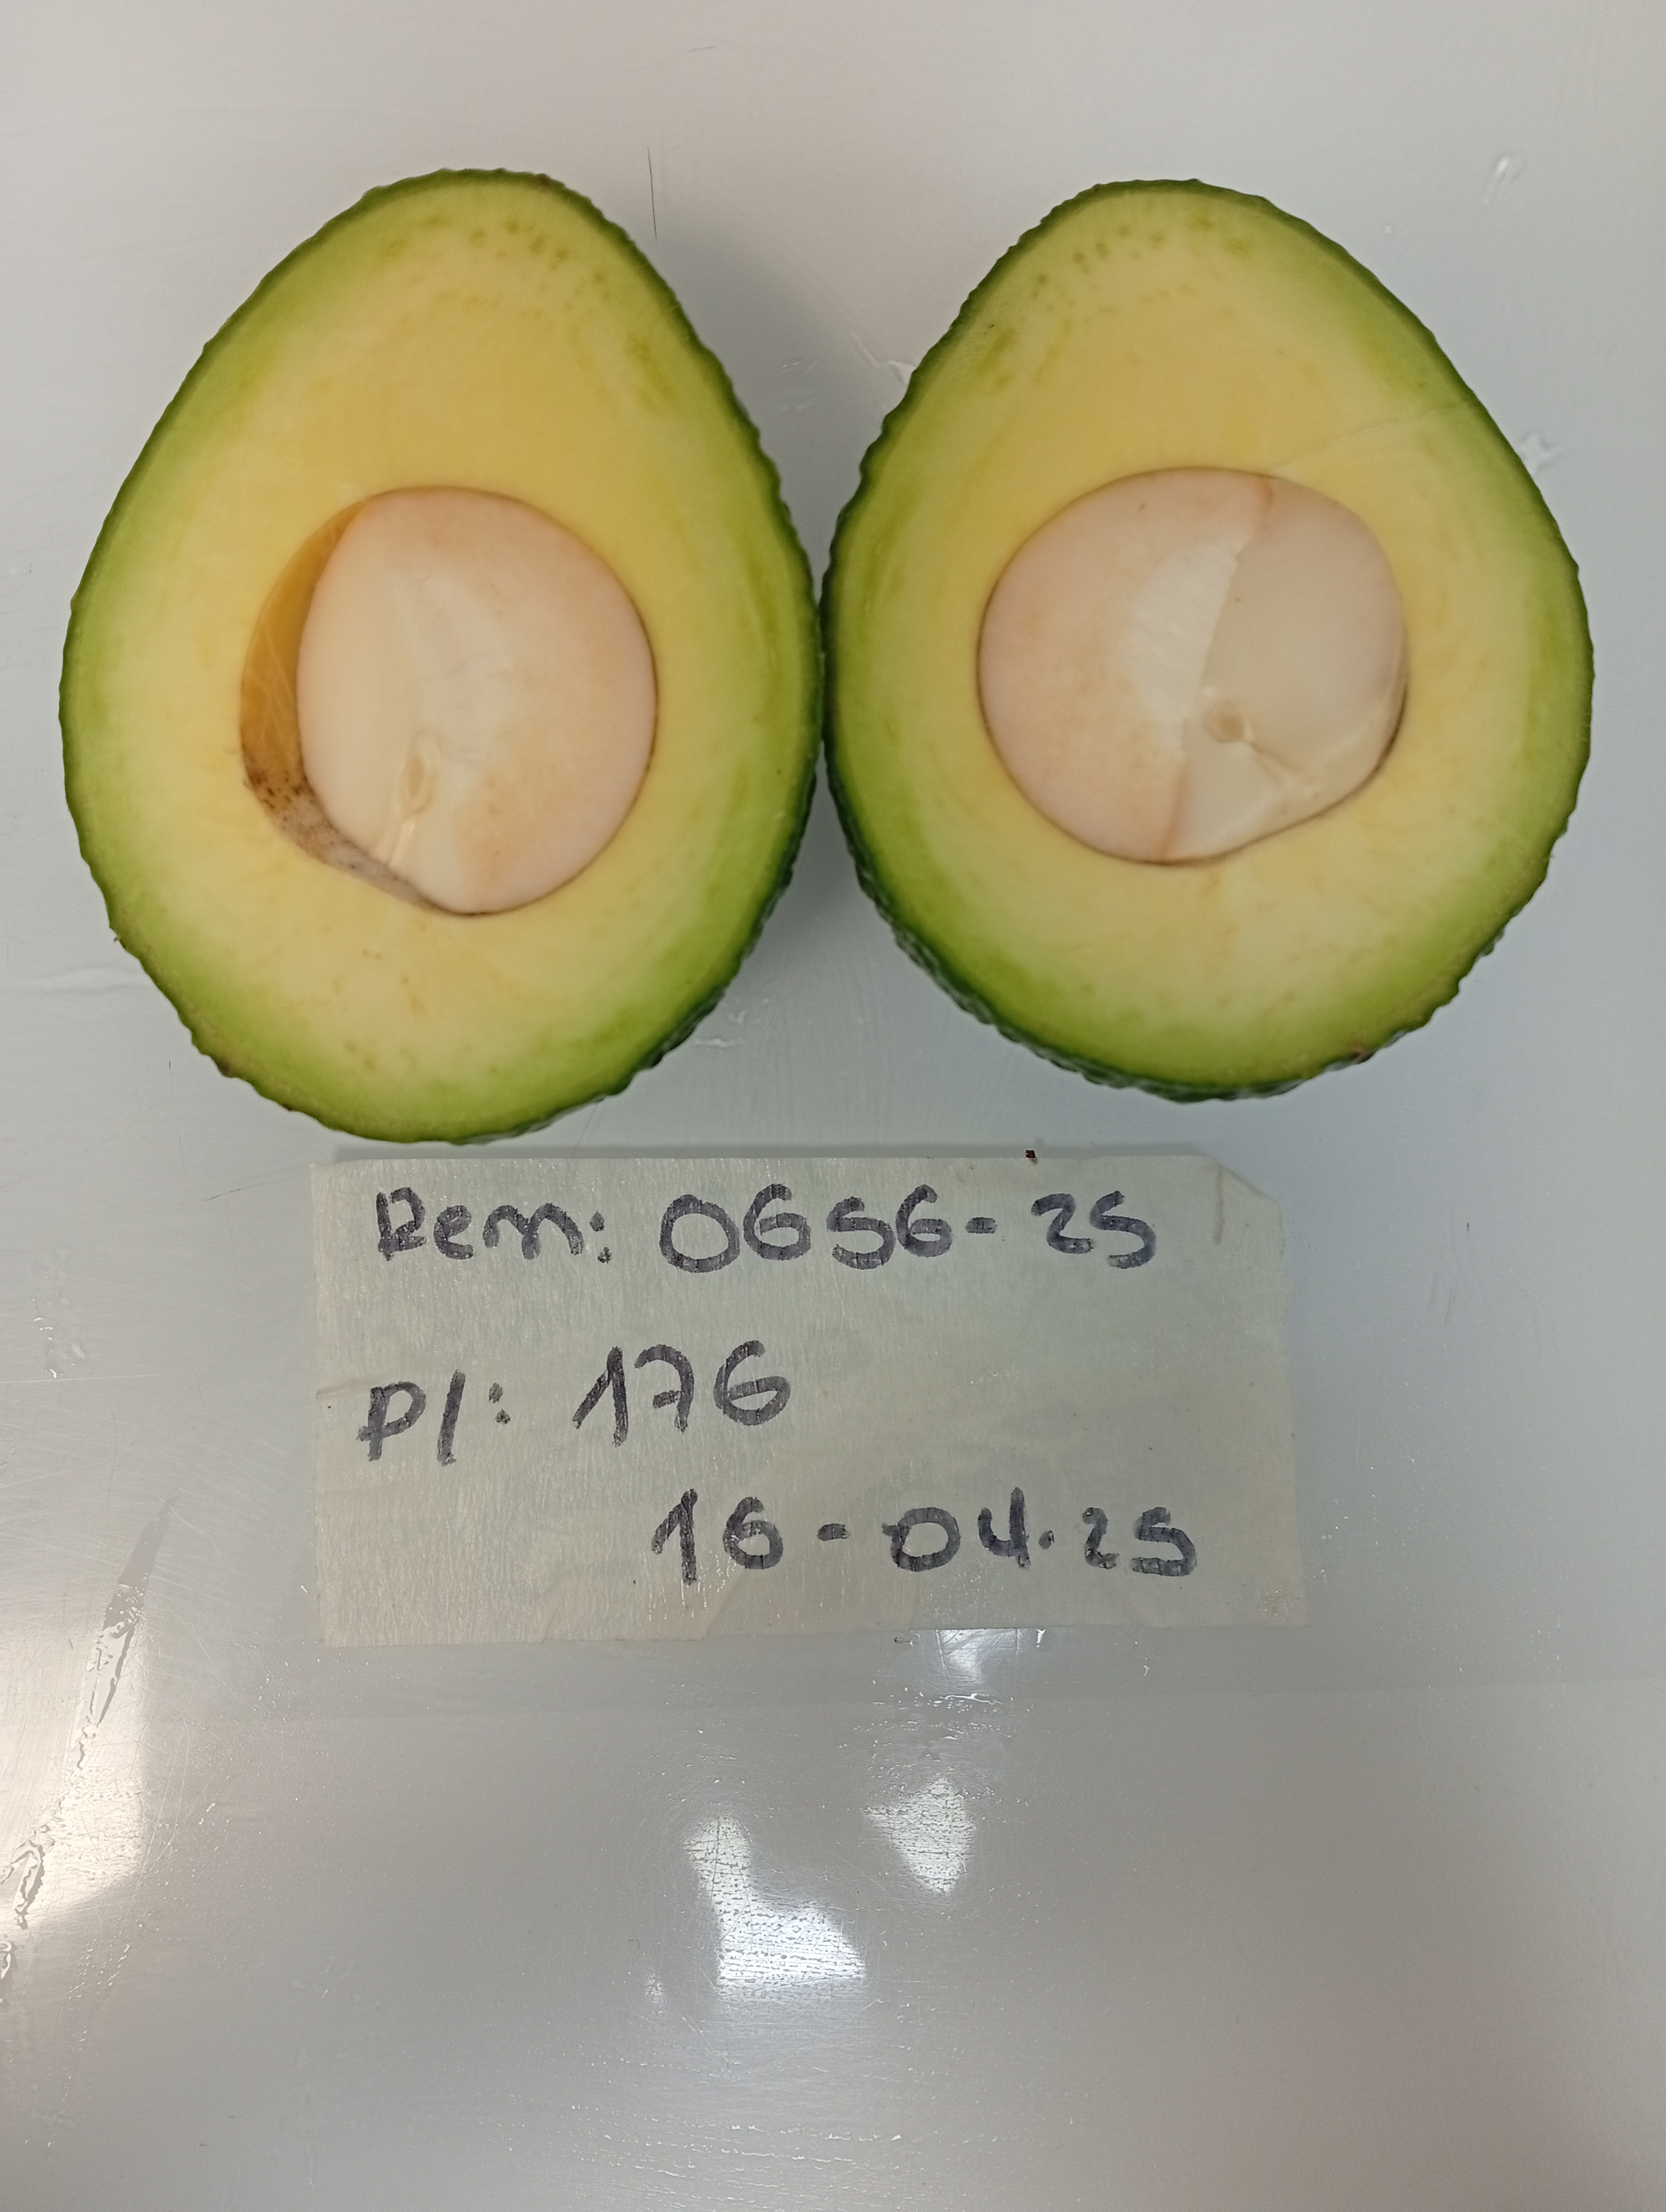 Rem: 0656-25
P/: 176
16-04.25